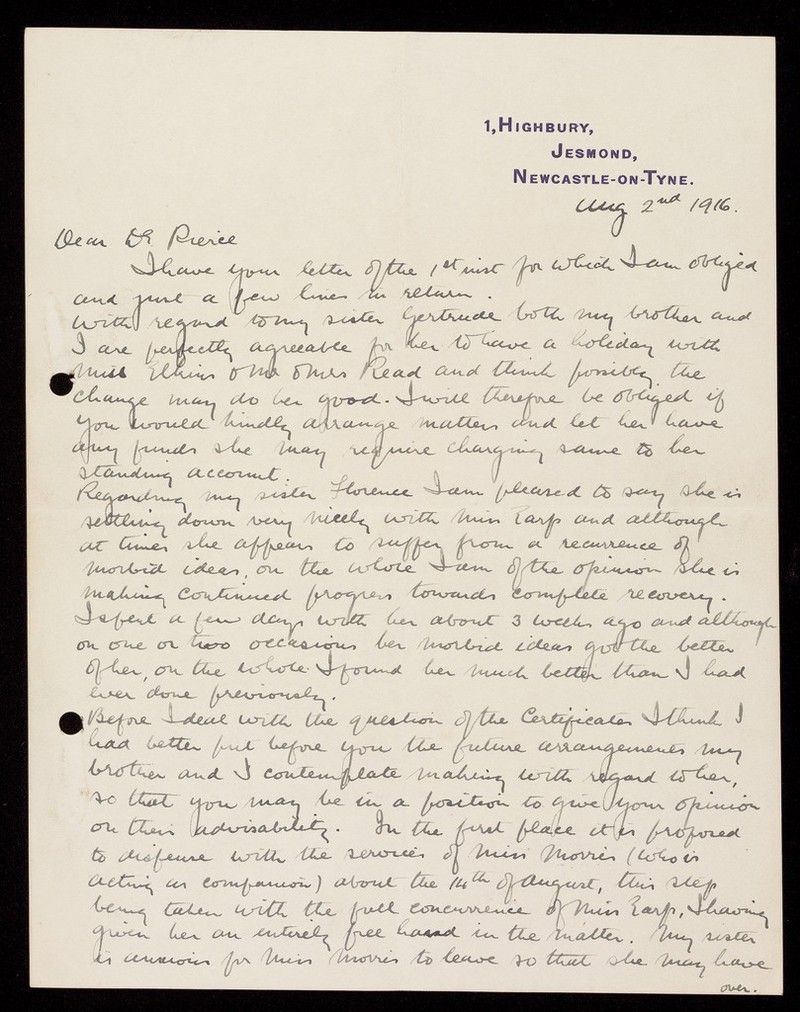 1, HIGHBURY,
JESMOND,
NEWCASTLE-ON-TYNE.
Aug 2nd 1916.
Dear Dr. Pierce
I have your letter of the 1st inst for which I am obliged
and just a few lines in return.
With regard to my sister Gertrude both my brother and
I are perfectly agreeable for her to have a holiday with
Miss Elkins & Mr & Mrs Read and think possibly the
change may do her good. I will therefore be obliged if
you would kindly arrange matters and let her have
any funds she may require charging same to her
standing account.
Regarding my sister Florence I am pleased to say she is
settling down very nicely with Miss Earp and although
at times she appears to suffer from a recurrence of
morbid ideas, on the whole I am of the opinion she is
making continued progress towards complete recovery.
I spent a few days with her about 3 weeks ago and although
on one or two occasions her morbid ideas got the better
of her, on the whole I found her much better than I had
ever done previously.
Before I deal with the question of the Certificates I think I
had better put before you the future arrangements my
brother and I contemplate making with regard to her,
so that you may be in a position to give your opinion
on their advisability. In the first place it is proposed
to dispense with the services of Miss Morris (who is
acting as companion) about the 14th of August, this step
being taken with the full concurrence of Miss Earp, I having
given her an entirely free hand in the matter. My sister
is anxious for Miss Morris to leave so that she may have
over.